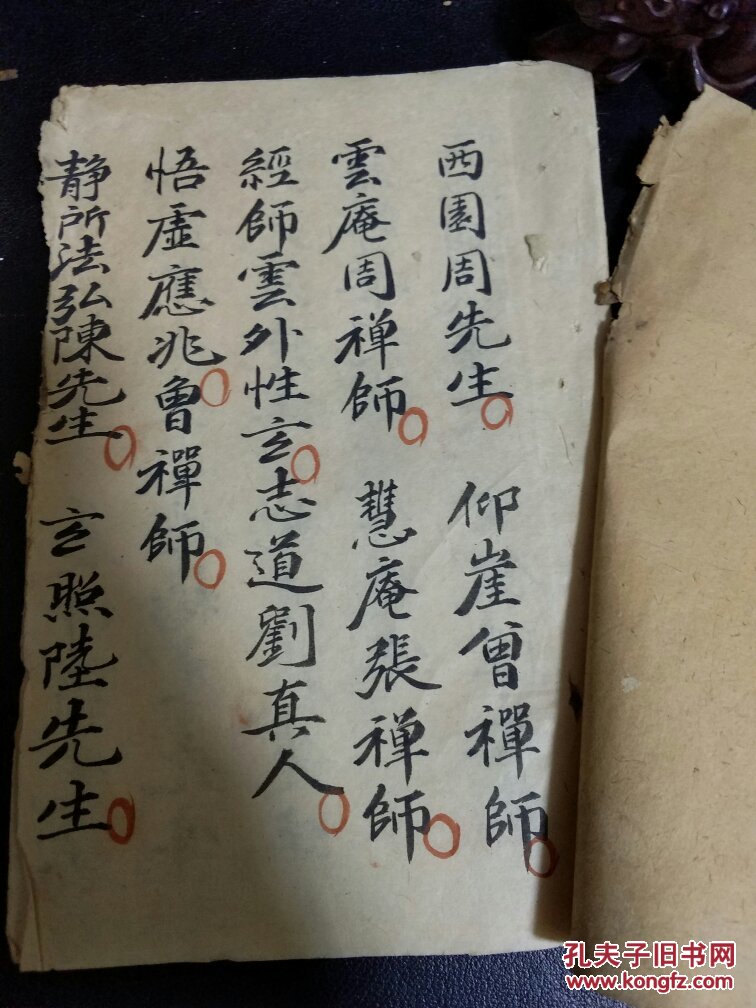 西園周先生 仰崖曾禪師
雲庵周禅師 慧庵張禅師
經師雲外性玄志道劉真人
悟虚應兆曾禪師
静所法弘陳先生 玄照陸先生
孔夫子旧书网
www.kongfz.com